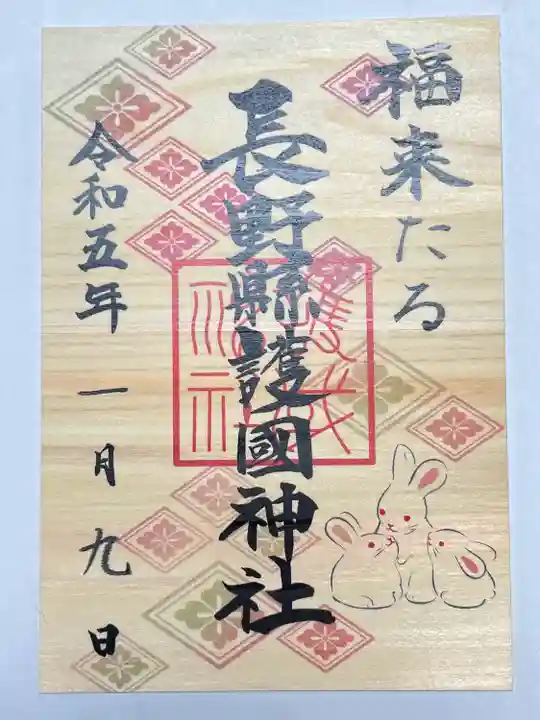 福来たる
長野縣護國神社
令和五年一月九日